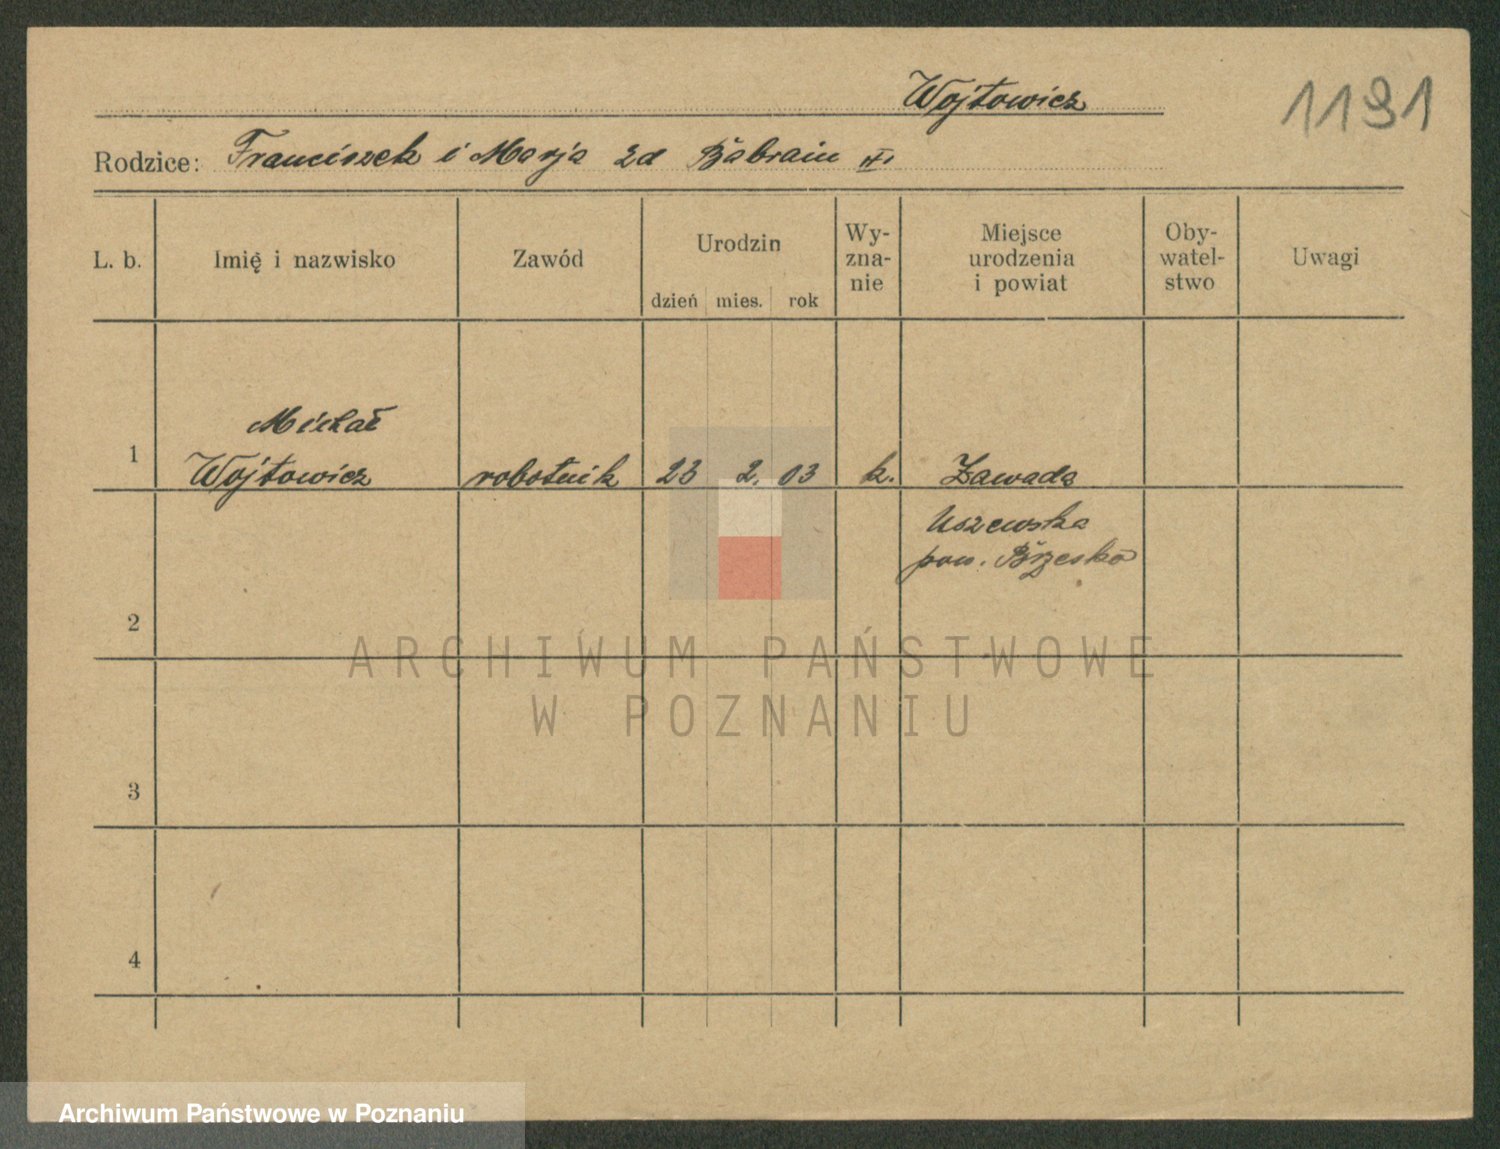 Wojtowicz
1191
Rodzice: Franciszek i Marja zd Babraiu
L. b. Imię i nazwisko Zawód Urodzin dzień mies. rok Wy-zna-nie Miejsce urodzenia i powiat Oby-watel-stwo Uwagi
Michał
1 Wojtowicz robotnik 23 2. 03 k. Zawada
Uszewska
pow. Brzesko
2
ARCHIWUM PAŃSTWOWE
W POZNANIU
3
4
Archiwum Państwowe w Poznaniu